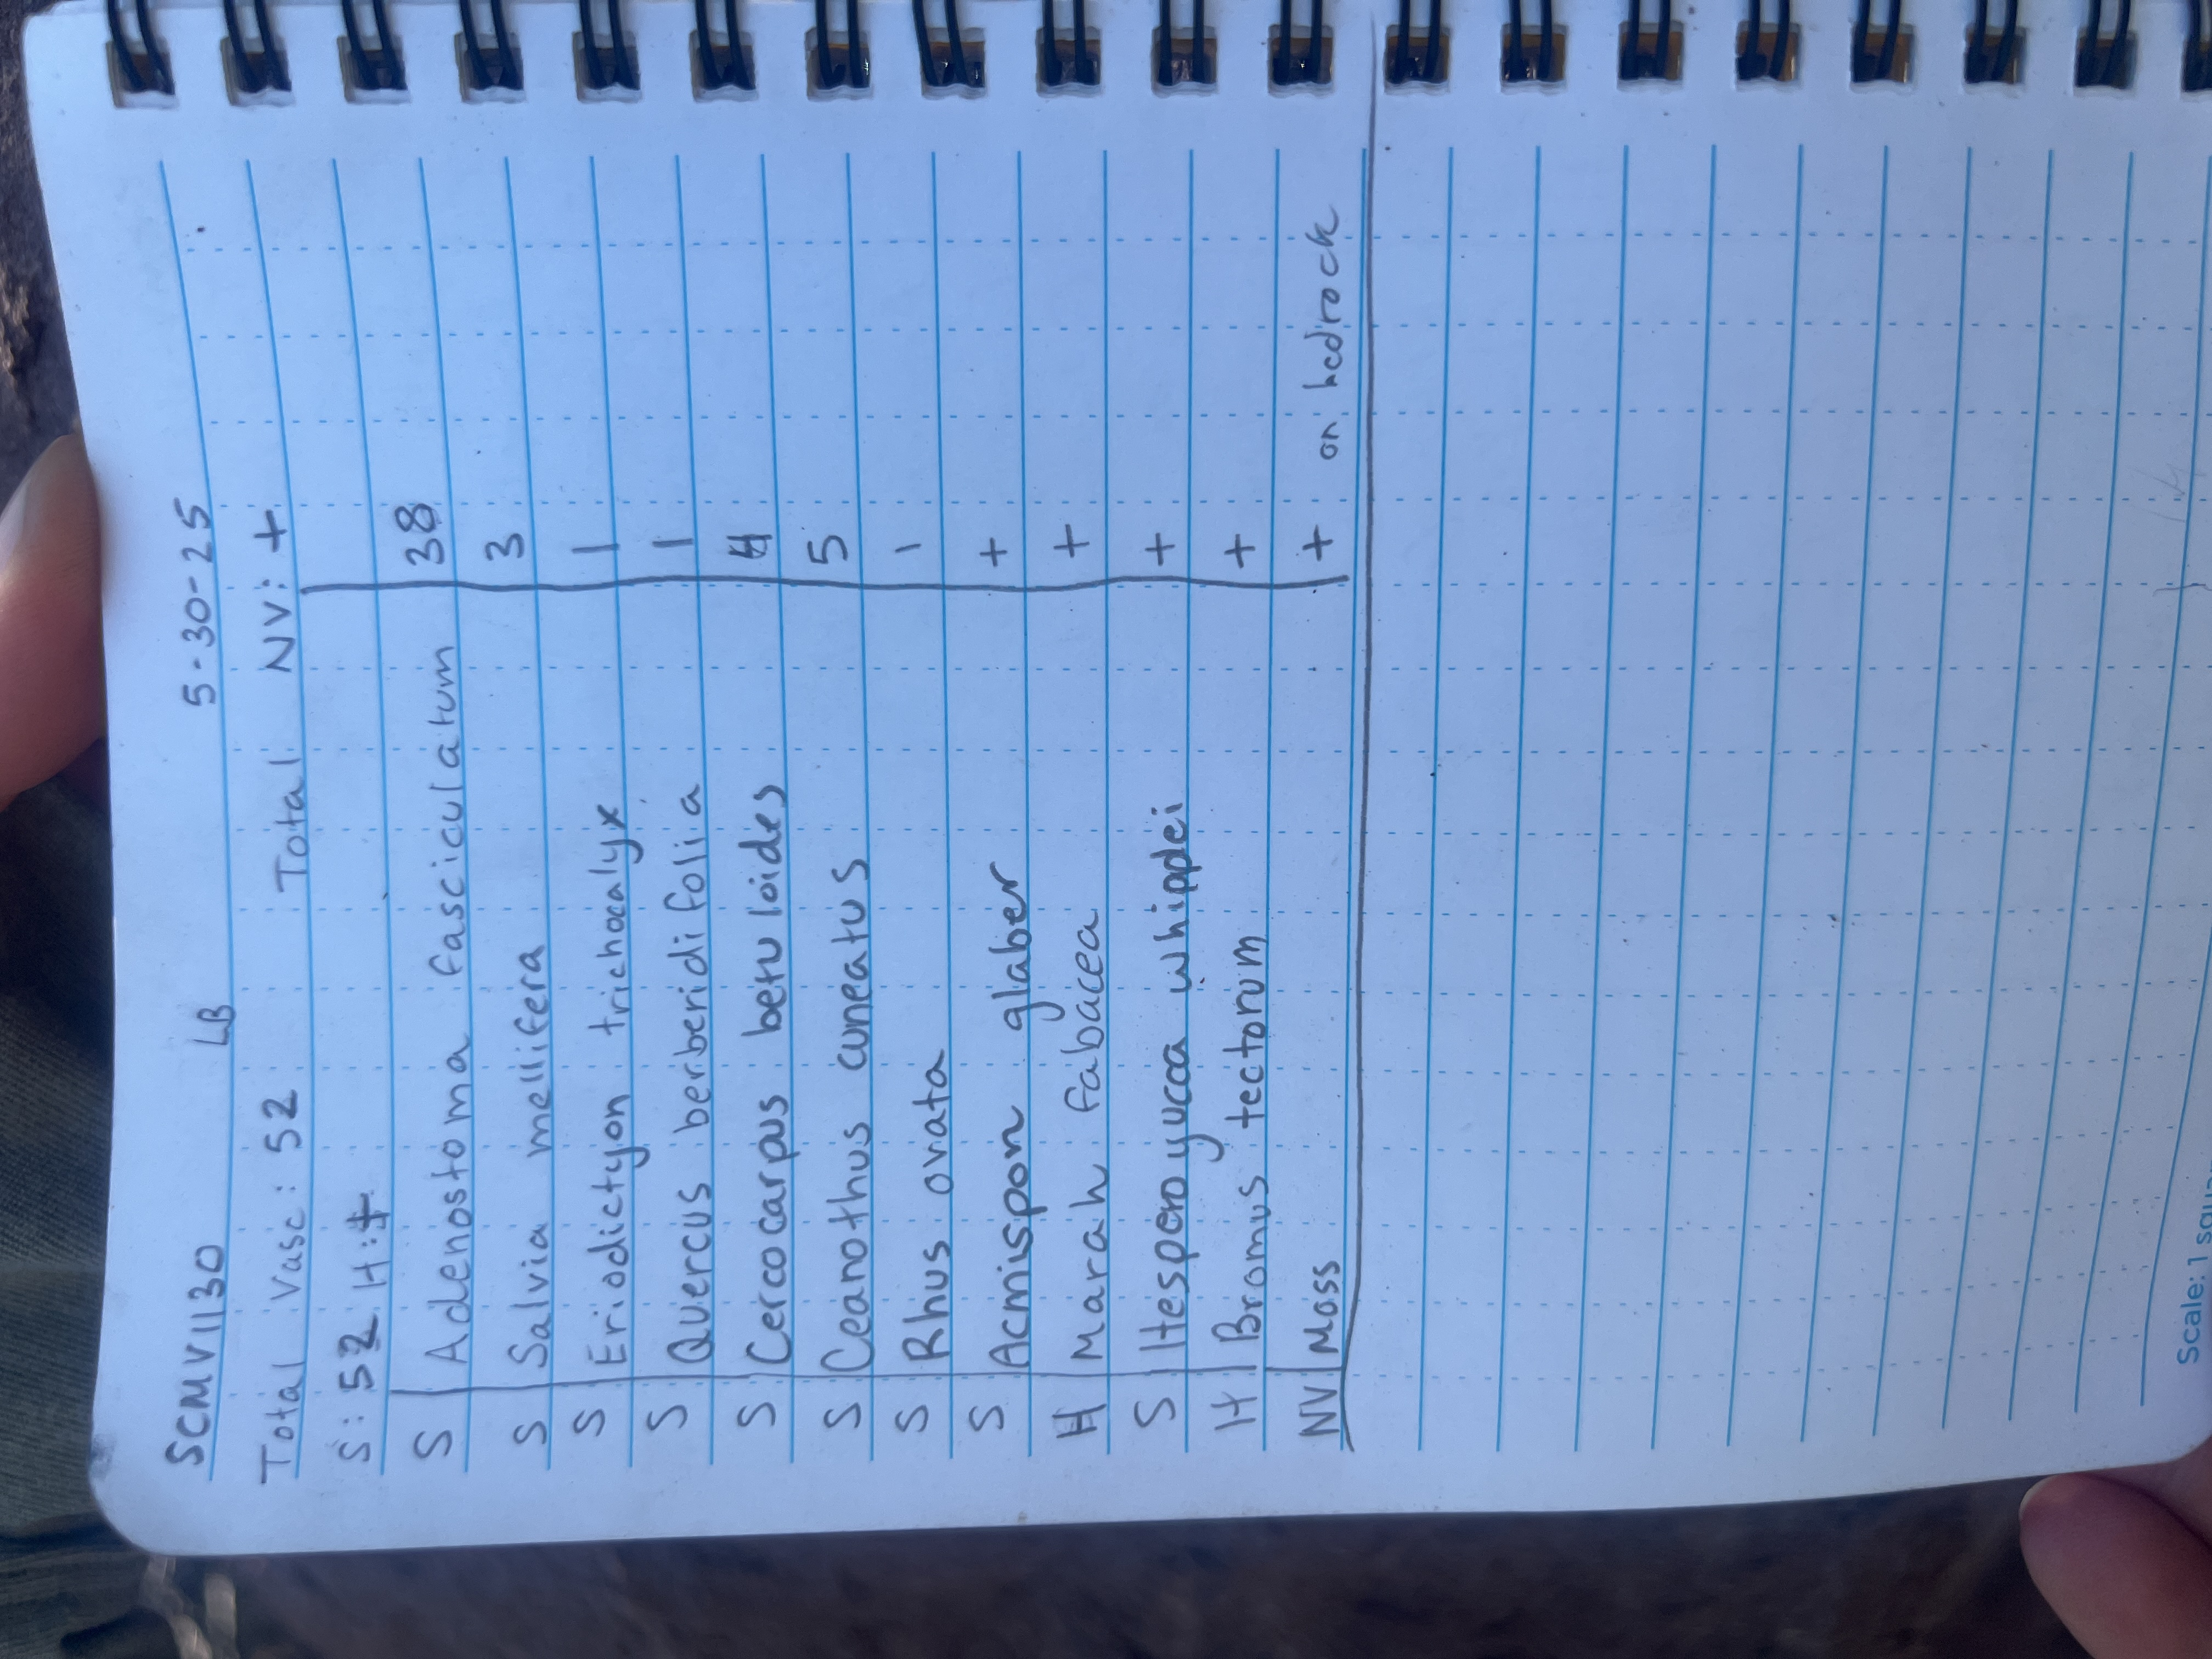 SCMV1130 LB 5-30-25
Total Vasc: 52 Total NV: +
S: 52 H: +
S Adenostoma fasciculatum 38
S Salvia mellifera 3
S Eriodictyon trichocalyx 1
S Quercus berberidifolia 1
S Cercocarpus betuloides 4
S Ceanothus cuneatus 5
S Rhus ovata 1
S Acmispon glaber +
H Marah fabacea +
S Hesperoyucca whipplei +
H Bromus tectorum +
NV Moss + on bedrock
Scale: 1